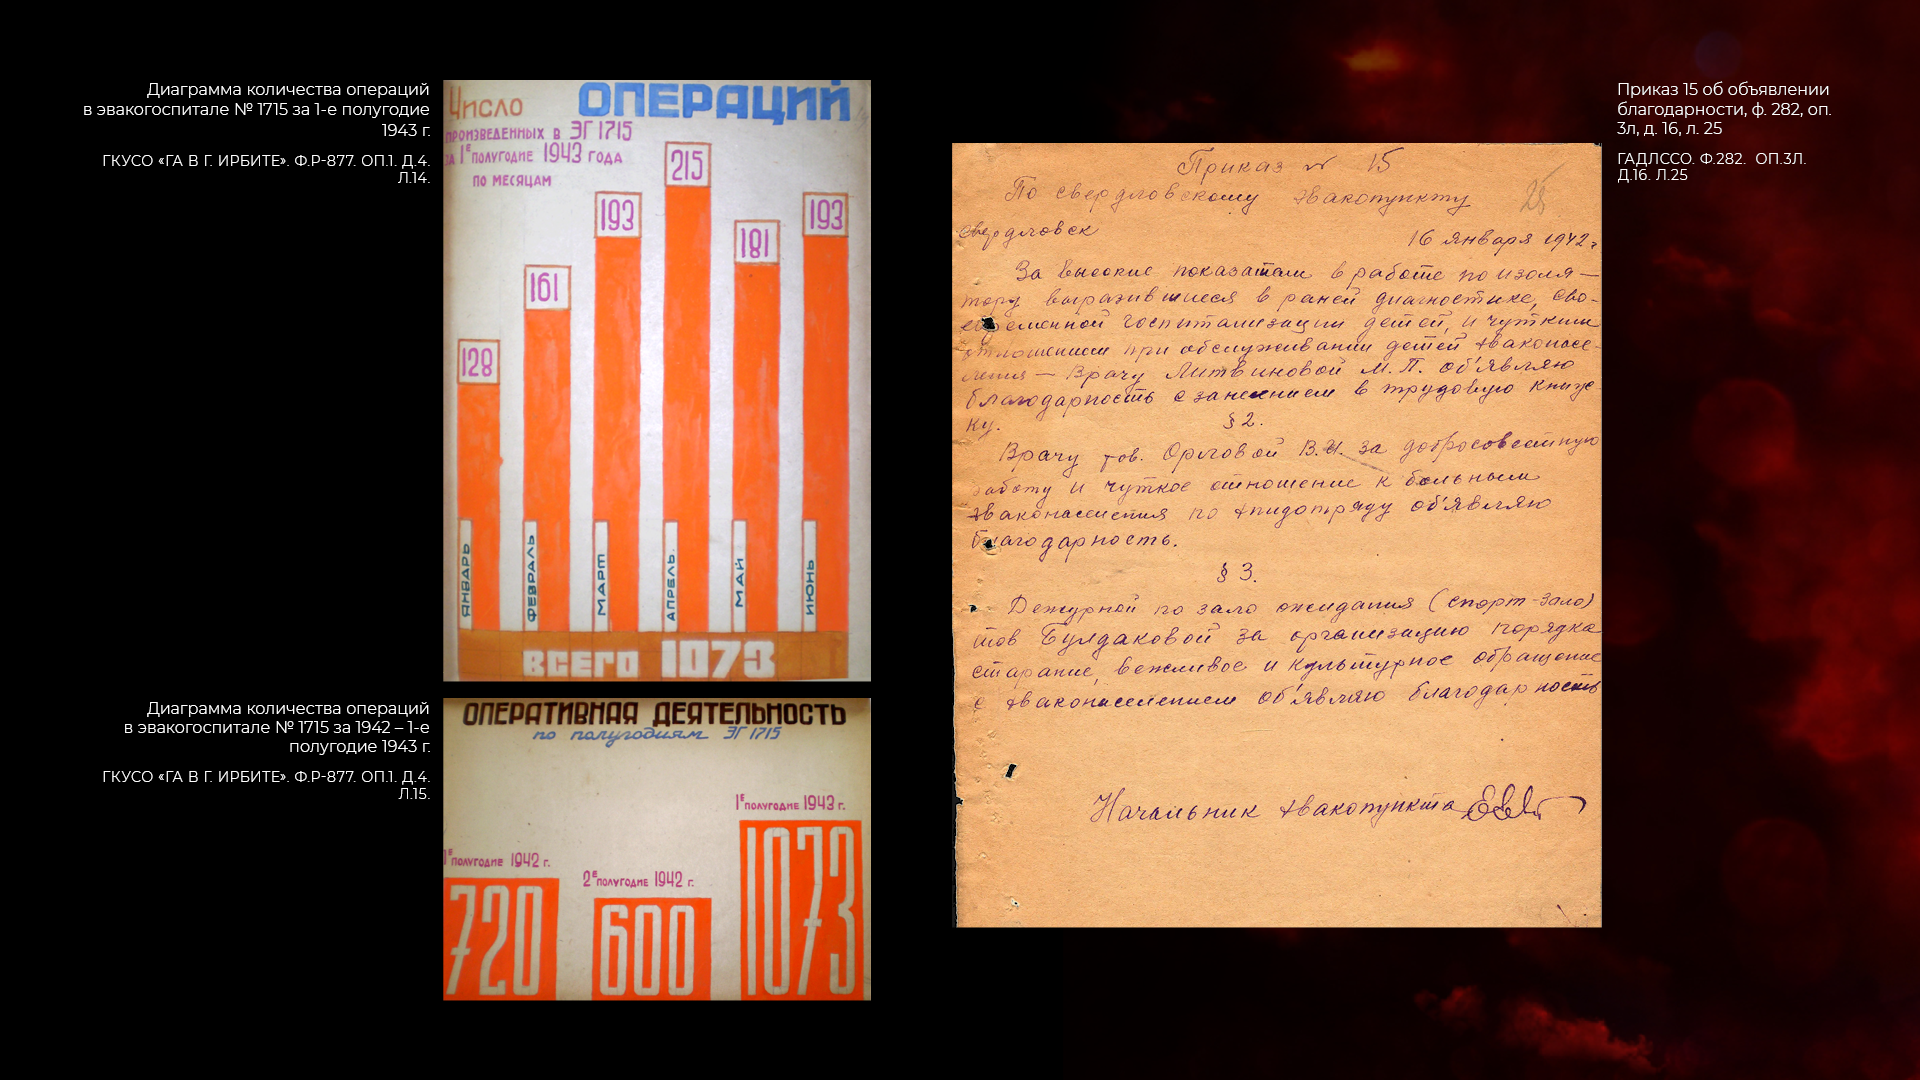 Диаграмма количества операций
в эвакогоспитале № 1715 за 1-е полугодие
1943 г.
ГКУСО «ГА В Г. ИРБИТЕ». Ф.Р-877. ОП.1. Д.4.
Л.14.
Число ОПЕРАЦИЙ
произведенных в ЭГ 1715
за 1е полугодие 1943 года
по месяцам
128
161
193
215
181
193
ЯНВАРЬ
ФЕВРАЛЬ
МАРТ
АПРЕЛЬ.
МАЙ
ИЮНЬ
всего 1073
Диаграмма количества операций
в эвакогоспитале № 1715 за 1942 – 1-е
полугодие 1943 г.
ГКУСО «ГА В Г. ИРБИТЕ». Ф.Р-877. ОП.1. Д.4.
Л.15.
ОПЕРАТИВНАЯ ДЕЯТЕЛЬНОСТЬ
по полугодиям ЭГ 1715
1е полугодие 1942 г.
2е полугодие 1942 г.
1е полугодие 1943 г.
720
600
1073
Приказ № 15
По свердловскому эвакопункту
25
Свердловск
16 января 1942 г
За высокие показатели в работе по изоля—
тору выразившиеся в раней диагностике, сво-
евременной госпитализации детей, и чутким
отношением при обслуживании детей эваконасе-
ления — Врачу Литвиновой М. П. об'являю
благодарность с занесением в трудовую книж-
ку.
§ 2.
Врачу тов. Орловой В.И. за добросовестную
работу и чуткое отношение к больным
эваконаселения по эпидотряду об'являю
благодарность.
§ 3.
Дежурной по зало ожидания (спорт-зало)
тов Булдаковой за организацию порядка
старание, вежливое и культурное обращение
с эваконаселением об'являю благодарность
Начальник эвакопункта
Приказ 15 об объявлении
благодарности, ф. 282, оп.
3л, д. 16, л. 25
ГАДЛССО. Ф.282. ОП.3Л.
Д.16. Л.25